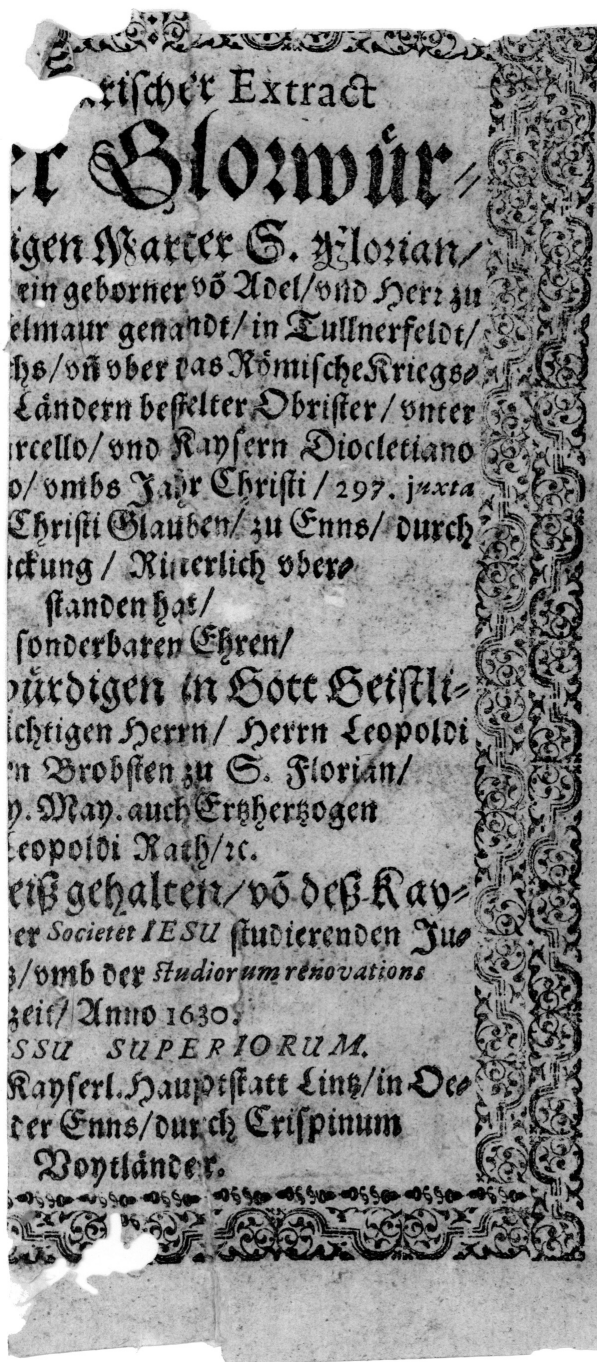 rischer Extract
er Glorwür⸗
igen Marter S. Florian/
ein geborner võ Adel/vnd Herr zu
elmaur genandt/in Tullnerfeldt/
chs/vñ vber das Römische Kriegs⸗
Ländern bestelter Obrister/vnter
rcello/vnd Kaysern Diocletiano
o/vmbs Jahr Christi/297. juxta
Christi Glauben/zu Enns/durch
ckung/Ritterlich vber⸗
standen hat/
sonderbaren Ehren/
würdigen in Gott Geistli⸗
ächtigen Herrn/Herrn Leopoldi
n Brobsten zu S. Florian/
y. May. auch Ertzhertzogen
Leopoldi Rath/ꝛc.
eiß gehalten/võ deß Kay⸗
er Societet IESU studierenden Ju⸗
z/vmb der studiorum renovations
zeit/Anno 1630.
SSU SUPERIORUM.
Kayserl. Hauptstatt Lintz/in Oe⸗
der Enns/durch Crispinum
Voytländer.